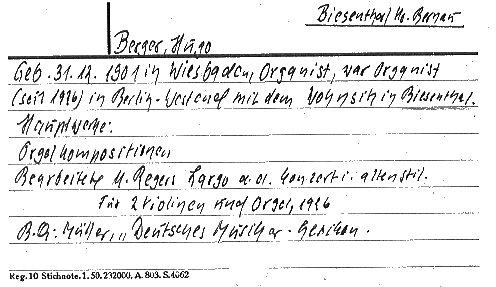 Biesenthal Kr. Bernau
Berger, Hugo
Geb. 31.12.1901 in Wiesbaden, Organist, war Organist
(seit 1926) in Berlin-Westend mit dem Wohnsitz in Biesenthal.
Hauptwerke:
Orgelkompositionen
Bearbeitete M. Regers Largo a.d. Konzert i. alten Stil.
für 2 Violinen und Orgel, 1926
Müller, „Deutsches Musiker-Lexikon.
Reg. 10 Stichnote. 1. 50. 232000. A. 803. S. 4062